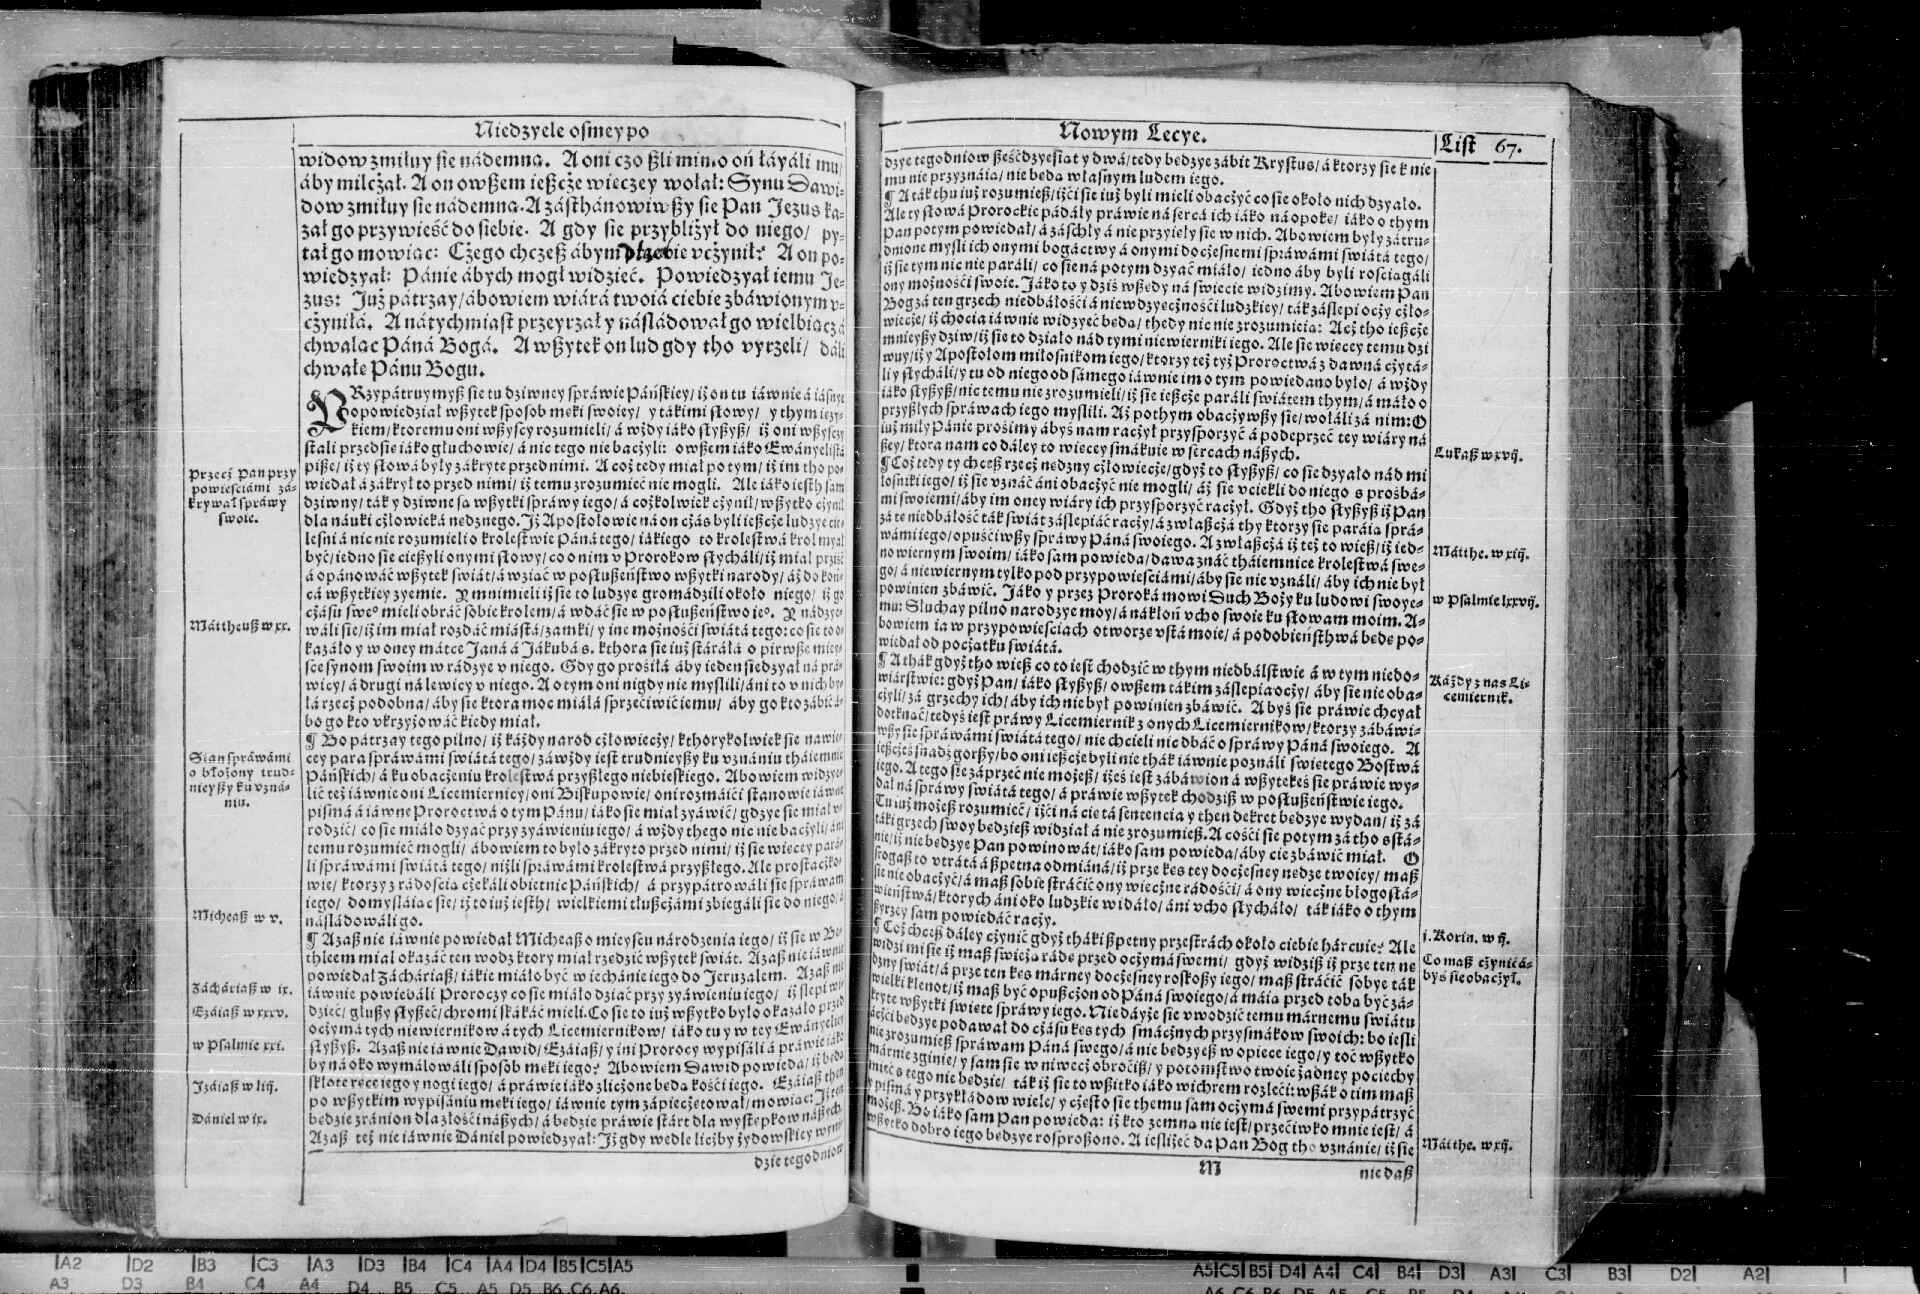 Niedzyele osmey po
widow zmiłuy sie nádemną. A oni czo ßli mimo oń łáyáli mu/
áby milcżał. A on owßem ießcże wieczey wołał: Synu Dawi-
dow zmiłuy sie nádemną. A zásthánowiwßy sie Pan Jezus ka-
zał go przywieść do siebie. A gdy sie przybliżył do niego/ py-
tał go mowiąc: Cżego chczeß ábym vcżynił? A on po-
wiedzyał: Pánie ábych mogł widzieć. Powiedzyał iemu Je-
zus: Już pátrzay/ ábowiem wiárá twoiá ciebie zbáwionym v-
cżyniłá. A nátychmiast przeyrzał y násládował go wielbiącz á
chwaląc Páná Bogá. A wßytek on lud gdy tho vyrzeli/ dáli
chwałę Pánu Bogu.
PRzypátruymyß sie tu dziwney spráwie Páńskiey/ iż on tu iáwnie á iásnye
opowiedział wßytek sposob męki swoiey/ y tákimi słowy/ y thym ięzy-
kiem/ ktoremu oni wßyscy rozumieli/ á wżdy iáko słyßyß/ iż oni wßyscy
stali przedsie iáko głuchowie/ á nic tego nie bacżyli: owßem iáko Ewányelistá
piße/ iż ty słowá były zákryte przed nimi. A coż tedy miał po tym/ iż im tho po-
wiedał á zákrył to przed nimi/ iż temu zrozumieć nie mogli. Ale iáko iesth sam
dziwny/ ták y dziwne są wßytki spráwy iego/ á cożkolwiek cżynił/ wßytko cżynił
dla náuki cżłowieká nędznego. Iż Apostołowie ná on cżás byli ießcże ludzye cie-
leśni á nic nie rozumieli o krolestwie Páná tego/ iákiego to krolestwá krol myał
być/ iedno sie cießyli onymi słowy/ co o nim v Prorokow słycháli/ iż miał przyść
á opánowáć wßytek świát/ á wziąć w posłußeństwo wßytki narody/ áż do koń-
cá wßytkiey zyemie. Y mnimieli iż sie to ludzye gromádzili około niego/ iż go
cżásu sweº mieli obráć sobie krolem/ á wdáć sie w posłußeństwo ieº. Y nádzye-
wáli sie/ iż im miał rozdáć miástá/ zamki/ y ine możności świátá tego: co sie to o-
kazáło y w oney mátce Janá á Jákubá s. kthora sie iuż stáráłá o pirwße miey-
sce synom swoim w rádzye v niego. Gdy go prosiłá áby ieden siedzyał ná prá-
wicy/ á drugi ná lewicy v niego. A o tym oni nigdy nie myslili/ áni to v nich by-
łá rzecż podobna/ áby sie ktora moc miáłá sprzeciwić iemu/ áby go kto zábić ál-
bo go kto vkrzyżowáć kiedy miał.
¶ Bo pátrzay tego pilno/ iż káżdy narod cżłowiecży/ kthorykolwiek sie nawię-
cey para spráwámi świátá tego/ záwżdy iest trudnieyßy ku vznániu tháiemnic
Páńskich/ á ku obacżeniu krolestwá przyßłego niebieskiego. Abowiem widzye-
lić też iáwnie oni Licemiernicy/ oni Biskupowie/ oni rozmáići stanowie iáwne
pismá á iáwne Proroctwá o tym Pánu/ iáko sie miał zyáwić/ gdzye sie miał v-
rodzić/ co sie miáło dzyać przy zyáwieniu iego/ á wżdy thego nic nie bacżyli/ áni
temu rozumieć mogli/ ábowiem to było zákryto przed nimi/ iż sie więcey pará-
li spráwámi świátá tego/ niżli spráwámi krolestwá przyßłego. Ale prostacżko-
wie/ ktorzy z rádoscią cżekáli obietnic Páńskich/ á przypátrowáli sie spráwam
iego/ domysláiąc sie/ iż to iuż iesth/ wielkiemi tłußcżámi zbiegáli sie do niego/ á
násládowáli go.
¶ Azaß nie iáwnie powiedał Micheaß o mieyscu národzenia iego/ iż sie w Be-
thleem miał okazáć ten wodz ktory miał rządzić wßytek świát. Azaß nie iáwnie
powiedał Zácháriaß/ iákie miáło być wiechánie iego do Jeruzalem. Azaß nie
iáwnie powiedáli Proroczy co sie miáło dziać przy zyáwieniu iego/ iż slepi wi-
dzieć/ głußy słyßeć/ chromi skakáć mieli. Co sie to iuż wßytko było okazáło przed
ocżymá tych niewiernikow á tych Licemiernikow/ iáko tu y w tey Ewányeliey
słyßyß. Azaß nie iáwnie Dawid/ Ezáiaß/ y ini Prorocy wypisáli á práwie iáko
by ná oko wymálowáli sposob męki iego? Abowiem Dawid powieda/ iż będą
skłote ręce iego y nogi iego/ á práwie iáko zlicżone będą kości iego. Ezáiaß then
po wßytkim wypisániu męki iego/ iáwnie tym zápiecżętował/ mowiąc: Iż ten
będzie zránion dla złości náßych/ á będzie práwie stárt dla występkow náßych.
Azaß też nie iáwnie Dániel powiedzyał: Iż gdy wedle licżby żydowskiey wynt
dzie tegodniow
Przecż Pan przy
powieściámi zá-
krywał spráwy
swoie.
Máttheuß w xx.
Stan spráwámi
o błożony trud-
nieyßy ku vzná-
niu.
Micheaß w v.
Zácháriaß w ix.
Ezáiaß w xxxv.
w Psalmie xxi.
Izáiaß w liij.
Dániel w ix.
Nowym Lecye.
List 67.
dzye tegodniow ßeśćdzyesiąt y dwá/ tedy będzye zábit Krystus/ á ktorzy sie k nie
mu nie przyznáią/ nie będą własnym ludem iego.
¶ A ták thu iuż rozumieß/ iżći sie iuż byli mieli obacżyć co sie około nich dzyało.
Ale ty słowá Prorockie pádáły práwie ná sercá ich iáko ná opokę/ iáko o thym
Pan potym powiedał/ á záschły á nie przyięły sie w nich. Abowiem były zátru-
dnione mysli ich onymi bogáctwy á onymi docżesnemi spráwámi świátá tego/
iż sie tym nic nie paráli/ co sie ná potym dzyać miáło/ iedno áby byli rościągáli
ony możności swoie. Jáko to y dziś wßędy ná świecie widzimy. Abowiem Pan
Bog zá ten grzech niedbáłości á niewdzyęcżności ludzkiey/ ták záslepi ocży cżło-
wiecże/ iż chocia iáwnie widzyeć będą/ thedy nic nie zrozumieią: Acż tho ießcże
mnieyßy dziw/ iż sie to dziáło nád tymi niewierniki iego. Ale sie więcey temu dzi
wuy/ iż y Apostołom miłośnikom iego/ ktorzy też tyż Proroctwá z dawná cżytá-
li y słycháli/ y tu od niego od sámego iáwnie im o tym powiedano było/ á wżdy
iáko słyßyß/ nic temu nie zrozumieli/ iż sie ießcże paráli światem thym/ á máło o
przyßłych spráwach iego myslili. Aż po thym obacżywßy sie/ wołáli zá nim: O
iuż miły Pánie prosimy ábyś nam racżył przysporzyć á podeprzeć tey wiáry ná
ßey/ ktora nam co dáley to więcey smákuie w sercach náßych.
¶ Coż tedy ty chceß rzecż nędzny cżłowiecże/ gdyż to słyßyß/ co sie dzyało nád mi
łośniki iego/ iż sie vznáć áni obacżyć nie mogli/ áż sie vciekli do niego s prośbá-
mi swoiemi/ áby im oney wiáry ich przysporzyć racżył. Gdyż tho słyßyß iż Pan
zá tę niedbáłość ták świát záslepiáć racży/ á zwłaßcżá thy ktorzy sie paráią sprá-
wámi iego/ opuściwßy spráwy Páná swoiego. A zwłaßcżá iż też to wieß/ iż ied-
no wiernym swoim/ iáko sam powieda/ dawa znáć tháiemnice krolestwá swe-
go/ á niewiernym tylko pod przypowieściámi/ áby sie nie vználi/ áby ich nie był
powinien zbáwić. Jáko y przez Proroká mowi Duch Boży ku ludowi swoye-
mu: Słuchay pilno narodzye moy/ á nákłoń vcho swoie ku słowam moim. A-
bowiem ia w przypowieściach otworzę vstá moie/ á podobieństhwá będę po-
wiedał od pocżątku świátá.
¶ A thák gdyż tho wieß co to iest chodzić w thym niedbálstwie á w tym niedo-
wiárstwie: gdyż Pan/ iáko słyßyß/ owßem tákim záslepia ocży/ áby sie nie oba-
cżyli/ zá grzechy ich/ áby ich nie był powinien zbáwić. Abyś sie práwie chcyał
dotknąć/ tedyś iest práwy Licemiernik z onych Licemiernikow/ ktorzy zábáwi-
wßy sie spráwámi świátá tego/ nie chcieli nic dbáć o spráwy Páná swoiego. A
ießcżeś snadź gorßy/ bo oni ießcże byli nie thák iáwnie poználi świętego Bostwá
iego. A tego sie záprzeć nie możeß/ iżeś iest zábáwion á wßytekeś sie práwie wy-
dał ná spráwy świátá tego/ á práwie wßytek chodziß w posłußeństwie iego.
Tu iuż możeß rozumieć/ iżći ná cię tá sentencia y then dekret będzye wydan/ iż zá
táki grzech swoy będzieß widział á nie zrozumieß. A cośći sie potym zá tho sstá-
nie/ iż nie będzye Pan powinowát/ iáko sam powieda/ áby cię zbáwić miał. O
srogaß to vtrátá á ßpetna odmiáná/ iż prze kęs tey docżesney nędze twoiey/ maß
sie nie obacżyć/ á maß sobie stráćić ony wiecżne rádości/ á ony wiecżne błogosłá-
wieństwá/ ktorych áni oko ludzkie widáło/ áni vcho słycháło/ ták iáko o thym
ßyrzey sam powiedáć racży.
¶ Coż chceß dáley cżynić gdyż tháki ßpetny przestrách około ciebie hárcuie? Ale
widzi mi sie iż maß świeżą rádę przed ocżymá swemi/ gdyż widziß iż prze ten nę
dzny świát/ á prze ten kęs márney docżesney roskoßy iego/ maß stráćić sobye ták
wielki klenot/ iż maß być opußcżon od Páná swoiego/ á máią przed tobą być zá-
kryte wßytki święte spráwy iego. Nie dayże sie vwodzić temu márnemu świátu
ácżći będzye podawał do cżásu kęs tych smácżnych przysmákow swoich: bo iesli
nie zrozumieß spráwam Páná swego/ á nie będzyeß w opiece iego/ y toć wßytko
márnie zginie/ y sam sie w niwecż obroćiß/ y potomstwo twoie żadney pociechy
mieć s tego nie będzie/ ták iż sie to wßitko iáko wichrem rozleci: wßák o tim maß
y pismá y przykłádow wiele/ y cżęsto sie themu sam ocżymá swemi przypátrzyć
możeß. Bo iáko sam Pan powieda: iż kto zemną nie iest/ przećiwko mnie iest/ á
wßytko dobro iego będzye rosproßono. A iesliżeć da Pan Bog tho vznánie/ iż sie
M
nie daß
Lukaß w xvij.
Mátthe. w xiij.
w Psalmie lxxvij.
Káżdy z nas Li-
cemiernik.
j. Korin. w ij.
Co maß cżynić á-
byś sie obacżył.
Mátthe. w xij.
A2 D2 B3 C3 A3 D3 B4 C4 A4 D4 B5 C5 A5
A3 D3 B4 C4 A4 D4 B5 C5 A5 D5 B6 C6 A6
A5 C5 B5 D4 A4 C4 B4 D3 A3 C3 B3 D2 A2